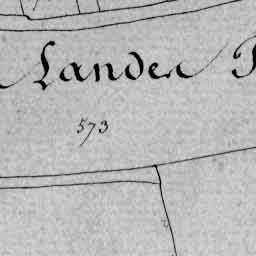 Landen
573